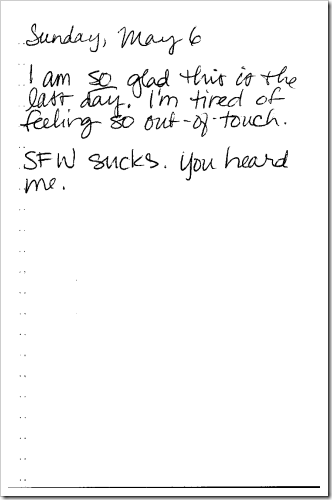 Sunday, May 6
I am so glad this is the
last day. I'm tired of
feeling so out-of-touch.
SFW sucks. You heard
me.